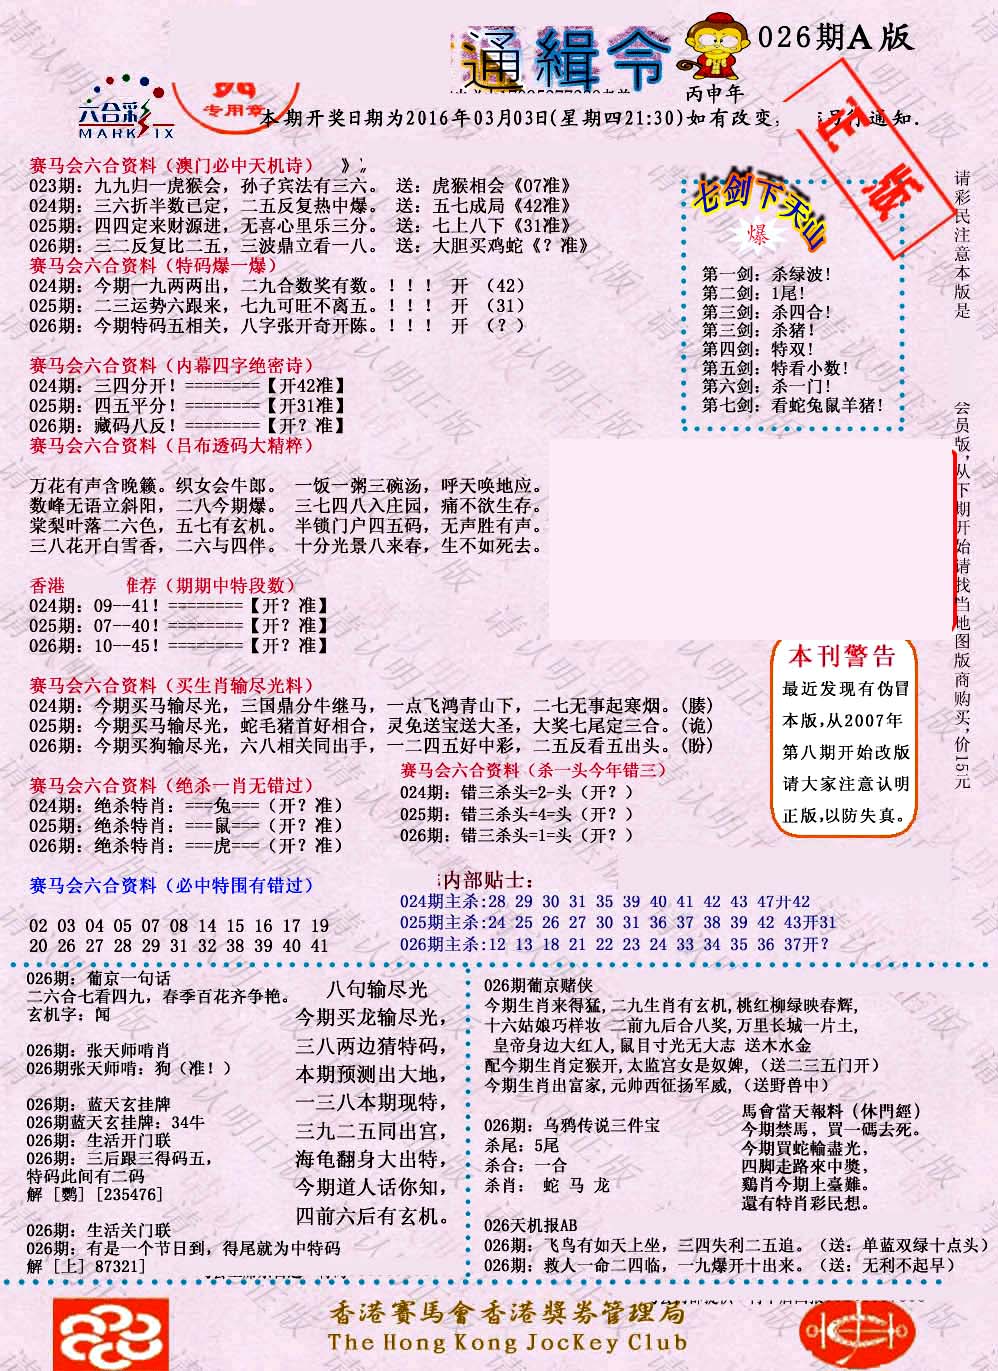 通緝令
026期A版
丙申年
六合彩
MARK SIX
专用章
本期开奖日期为2016年03月03日(星期四21:30)如有改变;
通知.
赛马会六合资料（澳门必中天机诗）　》
023期：九九归一虎猴会，孙子宾法有三六。 送：虎猴相会《07准》
024期：三六折半数已定，二五反复热中爆。 送：五七成局《42准》
025期：四四定来财源进，无喜心里乐三分。 送：七上八下《31准》
026期：三二反复比二五，三波鼎立看一八。 送：大胆买鸡蛇《？准》
赛马会六合资料（特码爆一爆）
024期：今期一九两两出，二九合数奖有数。！！！ 开 （42）
025期：二三运势六跟来，七九可旺不离五。！！！ 开 （31）
026期：今期特码五相关，八字张开奇开陈。！！！ 开 （？）
赛马会六合资料（内幕四字绝密诗）
024期：三四分开！========【开42准】
025期：四五平分！========【开31准】
026期：藏码八反！========【开？准】
赛马会六合资料（吕布透码大精粹）
万花有声含晚籁。织女会牛郎。 一饭一粥三碗汤，呼天唤地应。
数峰无语立斜阳，二八今期爆。 三七四八入庄园，痛不欲生存。
棠梨叶落二六色，五七有玄机。 半锁门户四五码，无声胜有声。
三八花开白雪香，二六与四伴。 十分光景八来春，生不如死去。
七剑下天山
爆
第一剑：杀绿波！
第二剑：1尾！
第三剑：杀四合！
第三剑：杀猪！
第四剑：特双！
第五剑：特看小数！
第六剑：杀一门！
第七剑：看蛇兔鼠羊猪！
请彩民注意本版是
会员版,从下期开始请找当地图版商购买,价15元
香港　　　推荐（期期中特段数）
024期：09--41！========【开？准】
025期：07--40！========【开？准】
026期：10--45！========【开？准】
赛马会六合资料（买生肖输尽光料）
024期：今期买马输尽光，三国鼎分牛继马，一点飞鸿青山下，二七无事起寒烟。(媵)
025期：今期买马输尽光，蛇毛猪首好相合，灵免送宝送大圣，大奖七尾定三合。(诡)
026期：今期买狗输尽光，六八相关同出手，一二四五好中彩，二五反看五出头。(盼)
本刊警告
最近发现有伪冒
本版,从2007年
第八期开始改版
请大家注意认明
正版,以防失真。
赛马会六合资料（绝杀一肖无错过）
024期：绝杀特肖：===兔===（开？准）
025期：绝杀特肖：===鼠===（开？准）
026期：绝杀特肖：===虎===（开？准）
赛马会六合资料（杀一头今年错三）
024期：错三杀头=2-头（开？）
025期：错三杀头=4=头（开？）
026期：错三杀头=1=头（开？）
赛马会六合资料（必中特围有错过）
02 03 04 05 07 08 14 15 16 17 19
20 26 27 28 29 31 32 38 39 40 41
内部贴士：
024期主杀:28 29 30 31 35 39 40 41 42 43 47开42
025期主杀:24 25 26 27 30 31 36 37 38 39 42 43开31
026期主杀:12 13 18 21 22 23 24 33 34 35 36 37开?
026期：葡京一句话
二六合七看四九，春季百花齐争艳。
玄机字：闻
026期：张天师啃肖
026期张天师啃：狗（准！）
026期：蓝天玄挂牌
026期蓝天玄挂牌：34牛
026期：生活开门联
026期：三后跟三得码五，
特码此间有二码
解［鹦］[235476]
026期：生活关门联
026期：有是一个节日到，得尾就为中特码
解［上］87321]
八句输尽光
今期买龙输尽光，
三八两边猜特码，
本期预测出大地，
一三八本期现特，
三九二五同出宫，
海龟翻身大出特，
今期道人话你知，
四前六后有玄机。
026期葡京赌侠
今期生肖来得猛,二九生肖有玄机,桃红柳绿映春辉,
十六姑娘巧样妆 二前九后合八奖,万里长城一片土,
皇帝身边大红人,鼠目寸光无大志 送木水金
配今期生肖定猴开,太监宫女是奴婢,（送二三五门开）
今期生肖出富家,元帅西征扬军威,（送野兽中）
026期：乌鸦传说三件宝
杀尾：5尾
杀合：一合
杀肖： 蛇 马 龙
馬會當天報料（休門經）
今期禁馬，買一碼去死。
今期買蛇輸盡光，
四脚走路來中獎，
鷄肖今期上臺難。
還有特肖彩民想。
026天机报AB
026期：飞鸟有如天上坐，三四失利二五追。（送：单蓝双绿十点头）
026期：救人一命二四临，一九爆开十出来。（送：无利不起早）
香港賽馬會香港獎券管理局
The Hong Kong JocKey Club